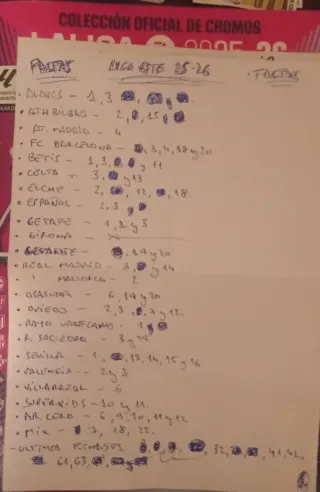 COLECCIÓN OFICIAL DE CROMOS
LALIGA 2025-26
FALTAS LIGA ESTE 25-26 FALTAS
· ALAVÉS - 1, 3
· ATH BILBAO - 2, 15
· AT. MADRID - 4
· FC BARCELONA - 3, 4, 18 y 20
· BETIS - 1, 3, y 11
· CELTA - 3, y 13
· ELCHE - 2, 12, 18
· ESPAÑOL - 2, 3
· GETAFE - 1, 2 y 3
· GIRONA -
· LEVANTE - 19 y 20
· REAL MADRID - y 14
· " MALLORCA - 2
· OSASUNA - 6, 19 y 20
· OVIEDO - 2, 7 y 12
· RAYO VALLECANO - 1
· R. SOCIEDAD - 3 y
· SEVILLA - 1, 13, 14, 15 y 16
· VALENCIA - 2 y 3
· VILLARREAL - 6
· SUPERKIDS - 10 y 11.
· AR CERO - 6, 9, 10, 11 y 12
· MIX - 7, 18, 22.
- ULTIMOS FICHAJES 32, 41, 42,
61, 63,